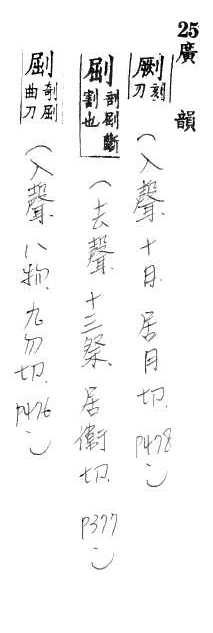 25廣韻
劂 刻刀 (入聲 十月 居月切 p478)
斷割也 (去聲 十三祭 居衛切 p377)
曲刀 (入聲 八物 九勿切 p476)